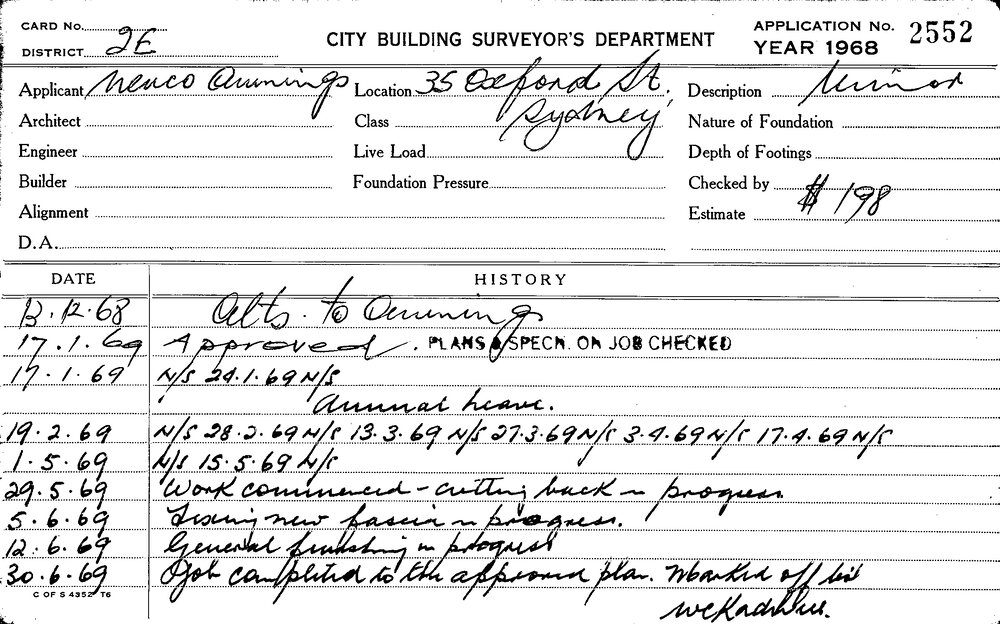 CARD No.
DISTRICT 2E
CITY BUILDING SURVEYOR'S DEPARTMENT
APPLICATION No. 2552
YEAR 1968
Applicant Nenco Awnings Location 35 Oxford St. Sydney Description Minor
Architect Class Nature of Foundation
Engineer Live Load Depth of Footings
Builder Foundation Pressure Checked by
Alignment Estimate $198
D.A.
DATE HISTORY
13.12.68 Alts. to Awnings
17.1.69 Approved. PLANS & SPECN. ON JOB CHECKED
17.1.69 N/S 24.1.69 N/S
Annual Leave.
19.2.69 N/S 28.2.69 N/S 13.3.69 N/S 27.3.69 N/S 3.4.69 N/S 17.4.69 N/S
1.5.69 N/S 15.5.69 N/S
29.5.69 Work commenced - cutting back in progress
5.6.69 Fixing new fascia in progress.
12.6.69 General finishing in progress
30.6.69 Job completed to the approved plan. Marked off
C OF S 4352 T6